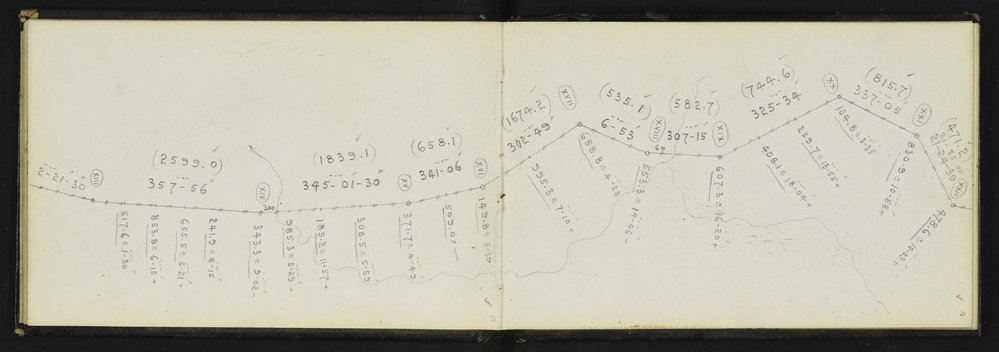 2-21-30"
XIII
(2599.0)
357-56
XIV
30
(1839.1)
345-01-30"
XV
(658.1)
341-06
XVI
(1674.2)
302-49
XVII
(535.1)
6-53
XVIII
60
(582.7)
307-15
XIX
(744.6)
325-34
XX
(815.7)
337-05
XXI
21-24-30"
XXII
517.6 @ 1-30
853.8 @ 6-15+
655.5 @ 5-21+
241.9 @ 4-15
343.3 @ 9-02-
985.3 @ 5-25+
185.2 @ 11-57+
308.5 @ 5-55
371.7 @ 4-49
509.0 @ —
995.3 @ 7-10+
688.8 @ 4-28
553.3 @ 14-46-
607.3 @ 16-20+
408.1 @ 18-04+
259.7 @ 13-55+
104.8 @ 3-25
830.9 @ 10-58+
478.6 @ 10-03+